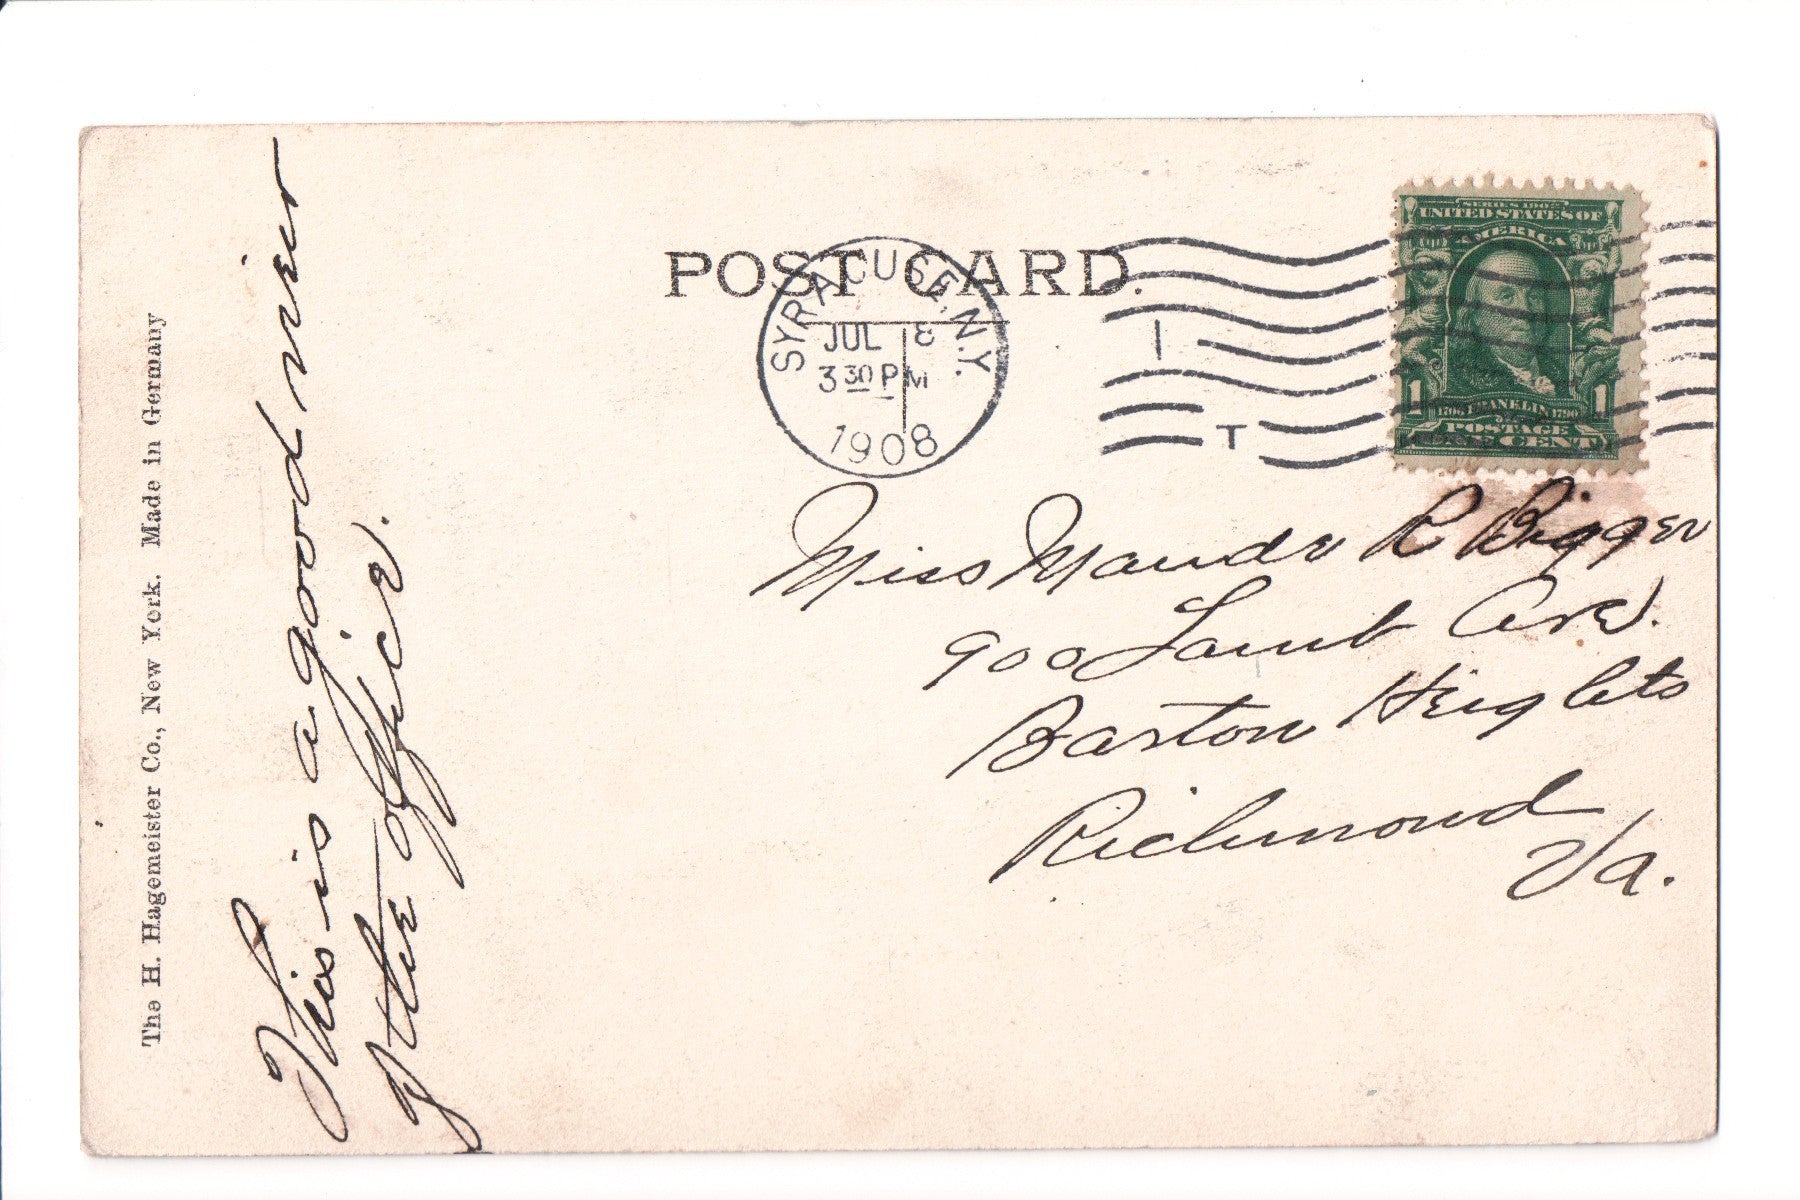 POST CARD.
SYRACUSE, N.Y.
JUL 8
3 30 PM
1908
1
T
SERIES 1902
UNITED STATES OF
AMERICA
1 1
1706 FRANKLIN 1790
POSTAGE
ONE CENT
Miss Maude R Bigger
900 Lamb Ave.
Barton Heights
Richmond
Va.
This is a good view
of the office.
The H. Hagemeister Co., New York. Made in Germany